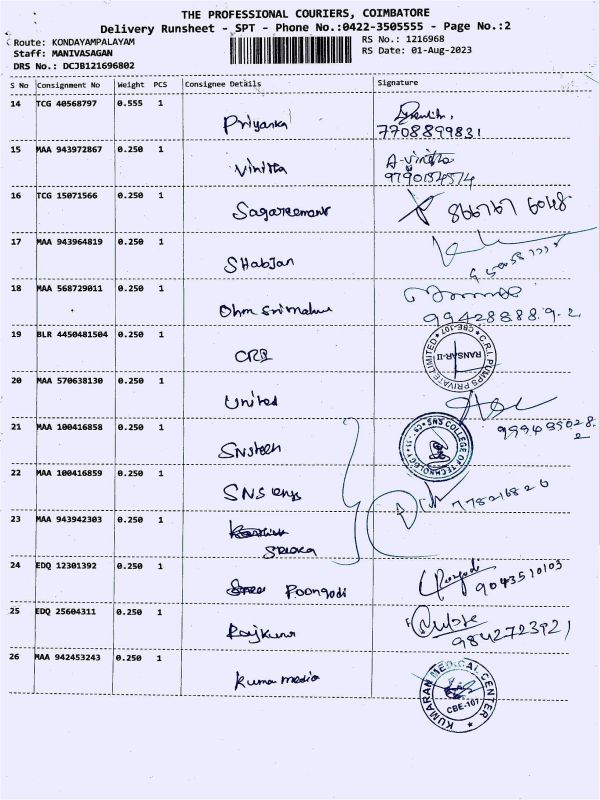 THE PROFESSIONAL COURIERS, COIMBATORE
Delivery Runsheet - SPT - Phone No.:0422-3505555 - Page No.:2
Route: KONDAYAMPALAYAM
RS No.: 1216968
Staff: MANIVASAGAN
RS Date: 01-Aug-2023
DRS No.: DCJB121696802
S No Consignment No Weight PCS Consignee Details Signature
14 TCG 40568797 0.555 1
Priyanka
7708899831
15 MAA 943972867 0.250 1
Vinitta
A-Vinitta
16 TCG 15071566 0.250 1
866767 6048
17 MAA 943964819 0.250 1
SHabJan
18 MAA 568729011 0.250 1
Ohm Srimahu
99428888.9.2
19 BLR 4450481504 0.250 1
CRI
C.R.I. PUMPS PRIVATE LIMITED
CBE-107
RANSAR-II
20 MAA 570638130 0.250 1
United
21 MAA 100416858 0.250 1
SNS College of Technology
22 MAA 100416859 0.250 1
SNS
23 MAA 943942303 0.250 1
24 EDQ 12301392 0.250 1
Poongodi
9043510103
25 EDQ 25604311 0.250 1
Rajkumar
9842723921
26 MAA 942453243 0.250 1
Kuma media
KUMARAN MEDICAL CENTER
CBE-107